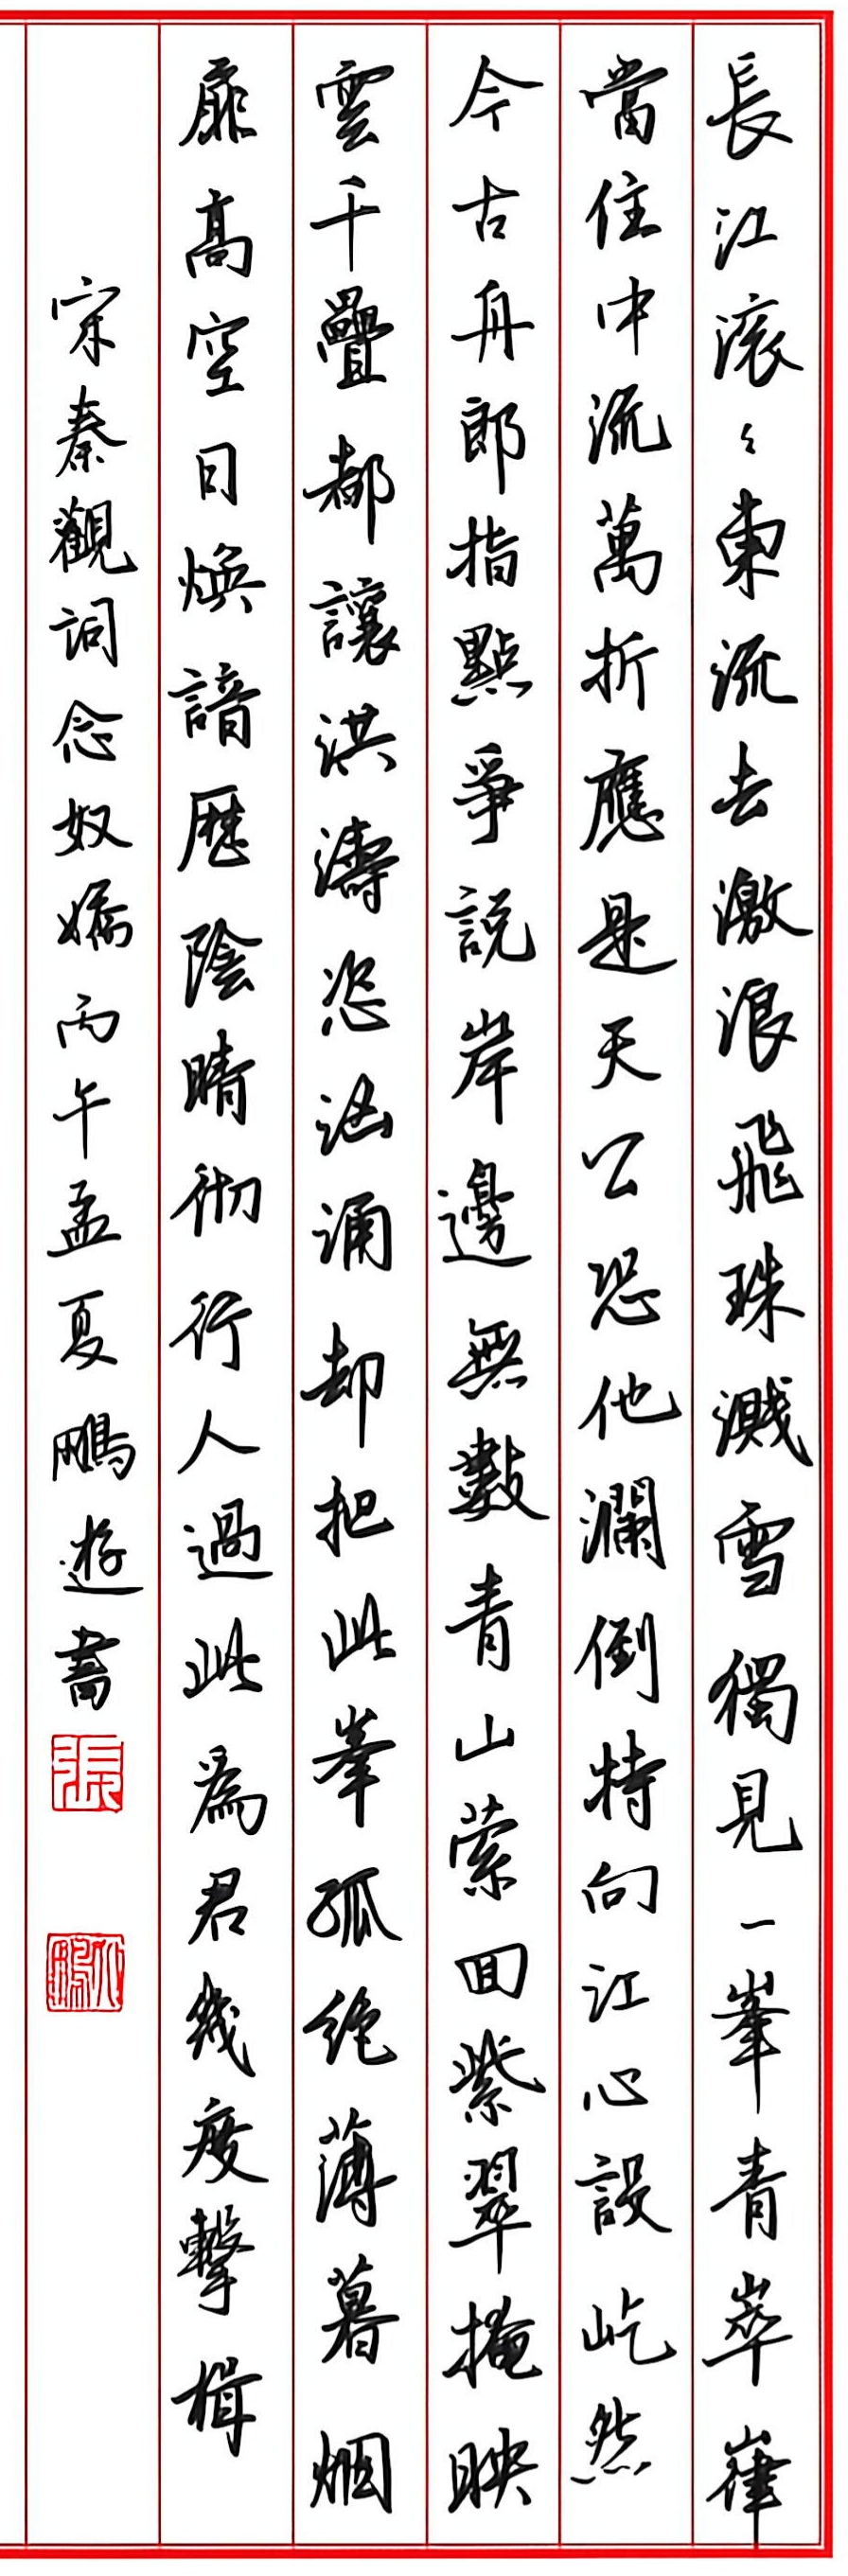 長江滾〻東流去激浪飛珠濺雪獨見一峯青崒嵂
當住中流萬折應是天公恐他瀾倒特向江心設屹然
今古舟郎指點爭説岸邊無數青山縈回紫翠掩映
雲千疊都讓洪濤恣洶涌却把此峯孤絶薄暮烟
扉高空日煥諳歷陰晴彻行人過此為君幾度擊楫
宋秦觀詞念奴嬌丙午孟夏鵬遊書
張